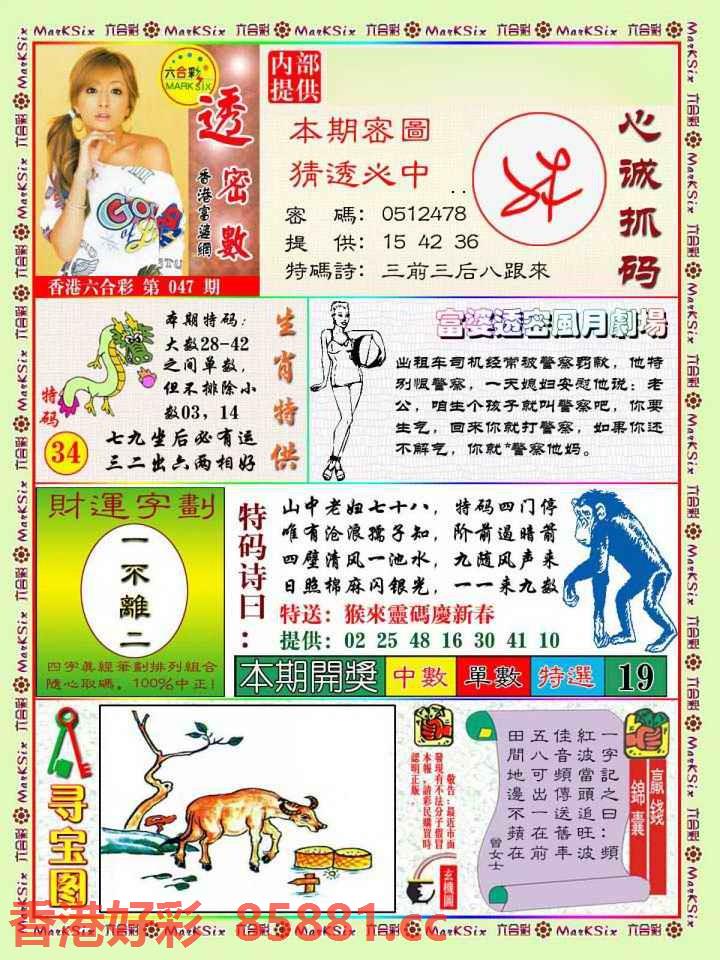 六合彩
MARK SIX
透密數
香港富婆網
香港六合彩 第 047 期
内部
提供
本期密圖
猜透必中
密 碼: 0512478
提 供: 15 42 36
特碼詩: 三前三后八跟來
心诚抓码
特码
34
本期特码:
大数28-42
之间单数,
但不排除小
数03, 14
七九坐后必有运
三二出六两相好
生肖特供
富婆透密風月劇場
出租车司机经常被警察罚款, 他特
别恨警察, 一天媳妇安慰他说: 老
公, 咱生个孩子就叫警察吧, 你要
生气, 回来你就打警察, 如果你还
不解气, 你就*警察他妈。
財運字劃
一不離二
四字真經筆劃排列組合
隨心取碼, 100%中正!
特码诗曰:
山中老妞七十八, 特码四门停
唯有沧浪孺子知, 阶前遏暗箭
四壁清风一池水, 九随风声来
日照棉麻闪银光, 一一来九数
特送: 猴來靈碼慶新春
提供: 02 25 48 16 30 41 10
本期開奬 中數 單數 特選 19
寻宝图
敬告:最近市面
發現有不法分子假冒
本報,請彩民購買時
認明正版.
玄機圖
贏錢
錦囊
一字記之曰:頻
紅波當頭追旺波
佳音頻傳送舊年
五八可出一在前
田間地邊不蘋在
曾女士
香港好彩 85881.cc